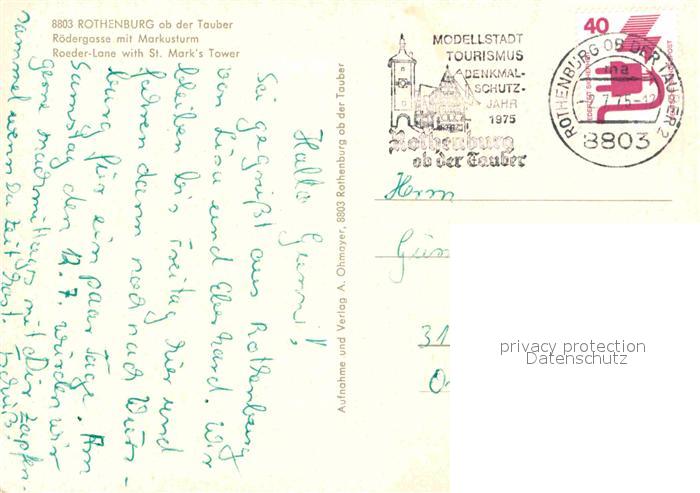 8803 ROTHENBURG ob der Tauber
Rödergasse mit Markusturm
Roeder-Lane with St. Mark's Tower
Hallo Gunni!
Sei gegrüßt aus Rothenburg
von Lisa und Eberhard. Wir
bleiben bis Freitag hier und
fahren dann noch nach Würz-
burg für ein paar Tage. Am
Samstag den 12.7. würden wir
gerne nachmittags mit Dir Zapfen
sammeln wenn Du Zeit hast.
Tschüß!
Aufnahme und Verlag A. Ohmayer, 8803 Rothenburg ob der Tauber
MODELLSTADT
TOURISMUS
DENKMAL-
SCHUTZ-
JAHR
1975
Rothenburg
ob der Tauber
40
ROTHENBURG OB DER TAUBER 2
ma
7.75-12
8803
Herrn
Gün
31
privacy protection
Datenschutz